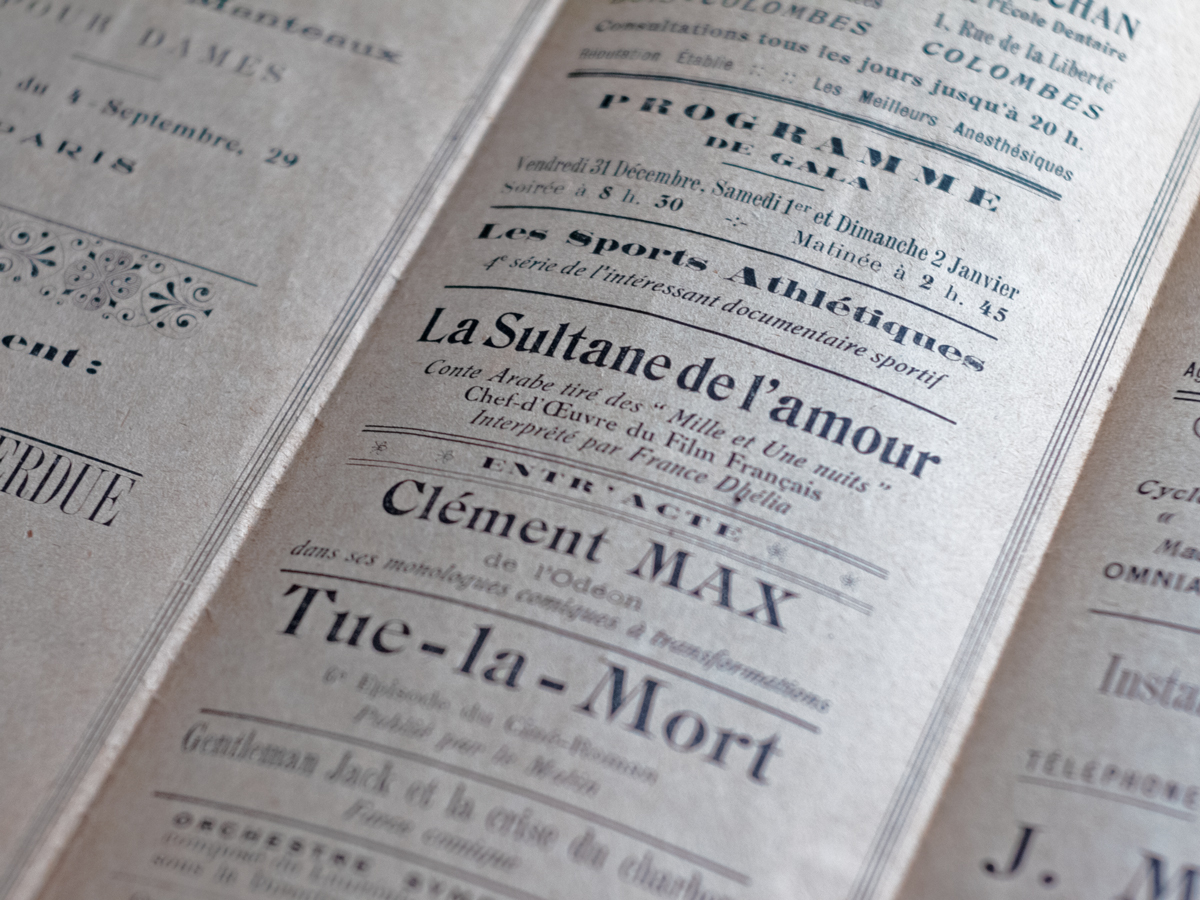 Manteaux
POUR DAMES
du 4-Septembre, 29
PARIS
ent:
ERDUE
CHAN
l'École Dentaire
1, Rue de la Liberté
COLOMBES
COLOMBES
Consultations tous les jours jusqu'à 20 h.
Réputation Établie :: :: Les Meilleurs Anesthésiques
PROGRAMME
DE GALA
Vendredi 31 Décembre, Samedi 1er et Dimanche 2 Janvier
Soirée à 8 h. 30 Matinée à 2 h. 45
Les Sports Athlétiques
4e série de l'intéressant documentaire sportif
La Sultane de l'amour
Conte Arabe tiré des “ Mille et Une nuits ”
Chef-d'Œuvre du Film Français
Interprété par France Dhélia
ENTR'ACTE
Clément MAX
de l'Odéon
dans ses monologues comiques à transformations
Tue-la-Mort
6e Episode du Ciné-Roman
Publié par le Matin
Gentleman Jack et la crise du
Farce comique
ORCHESTRE
Cycl
“
Ma
OMNIA
Insta
TÉLÉPHONE
J. M